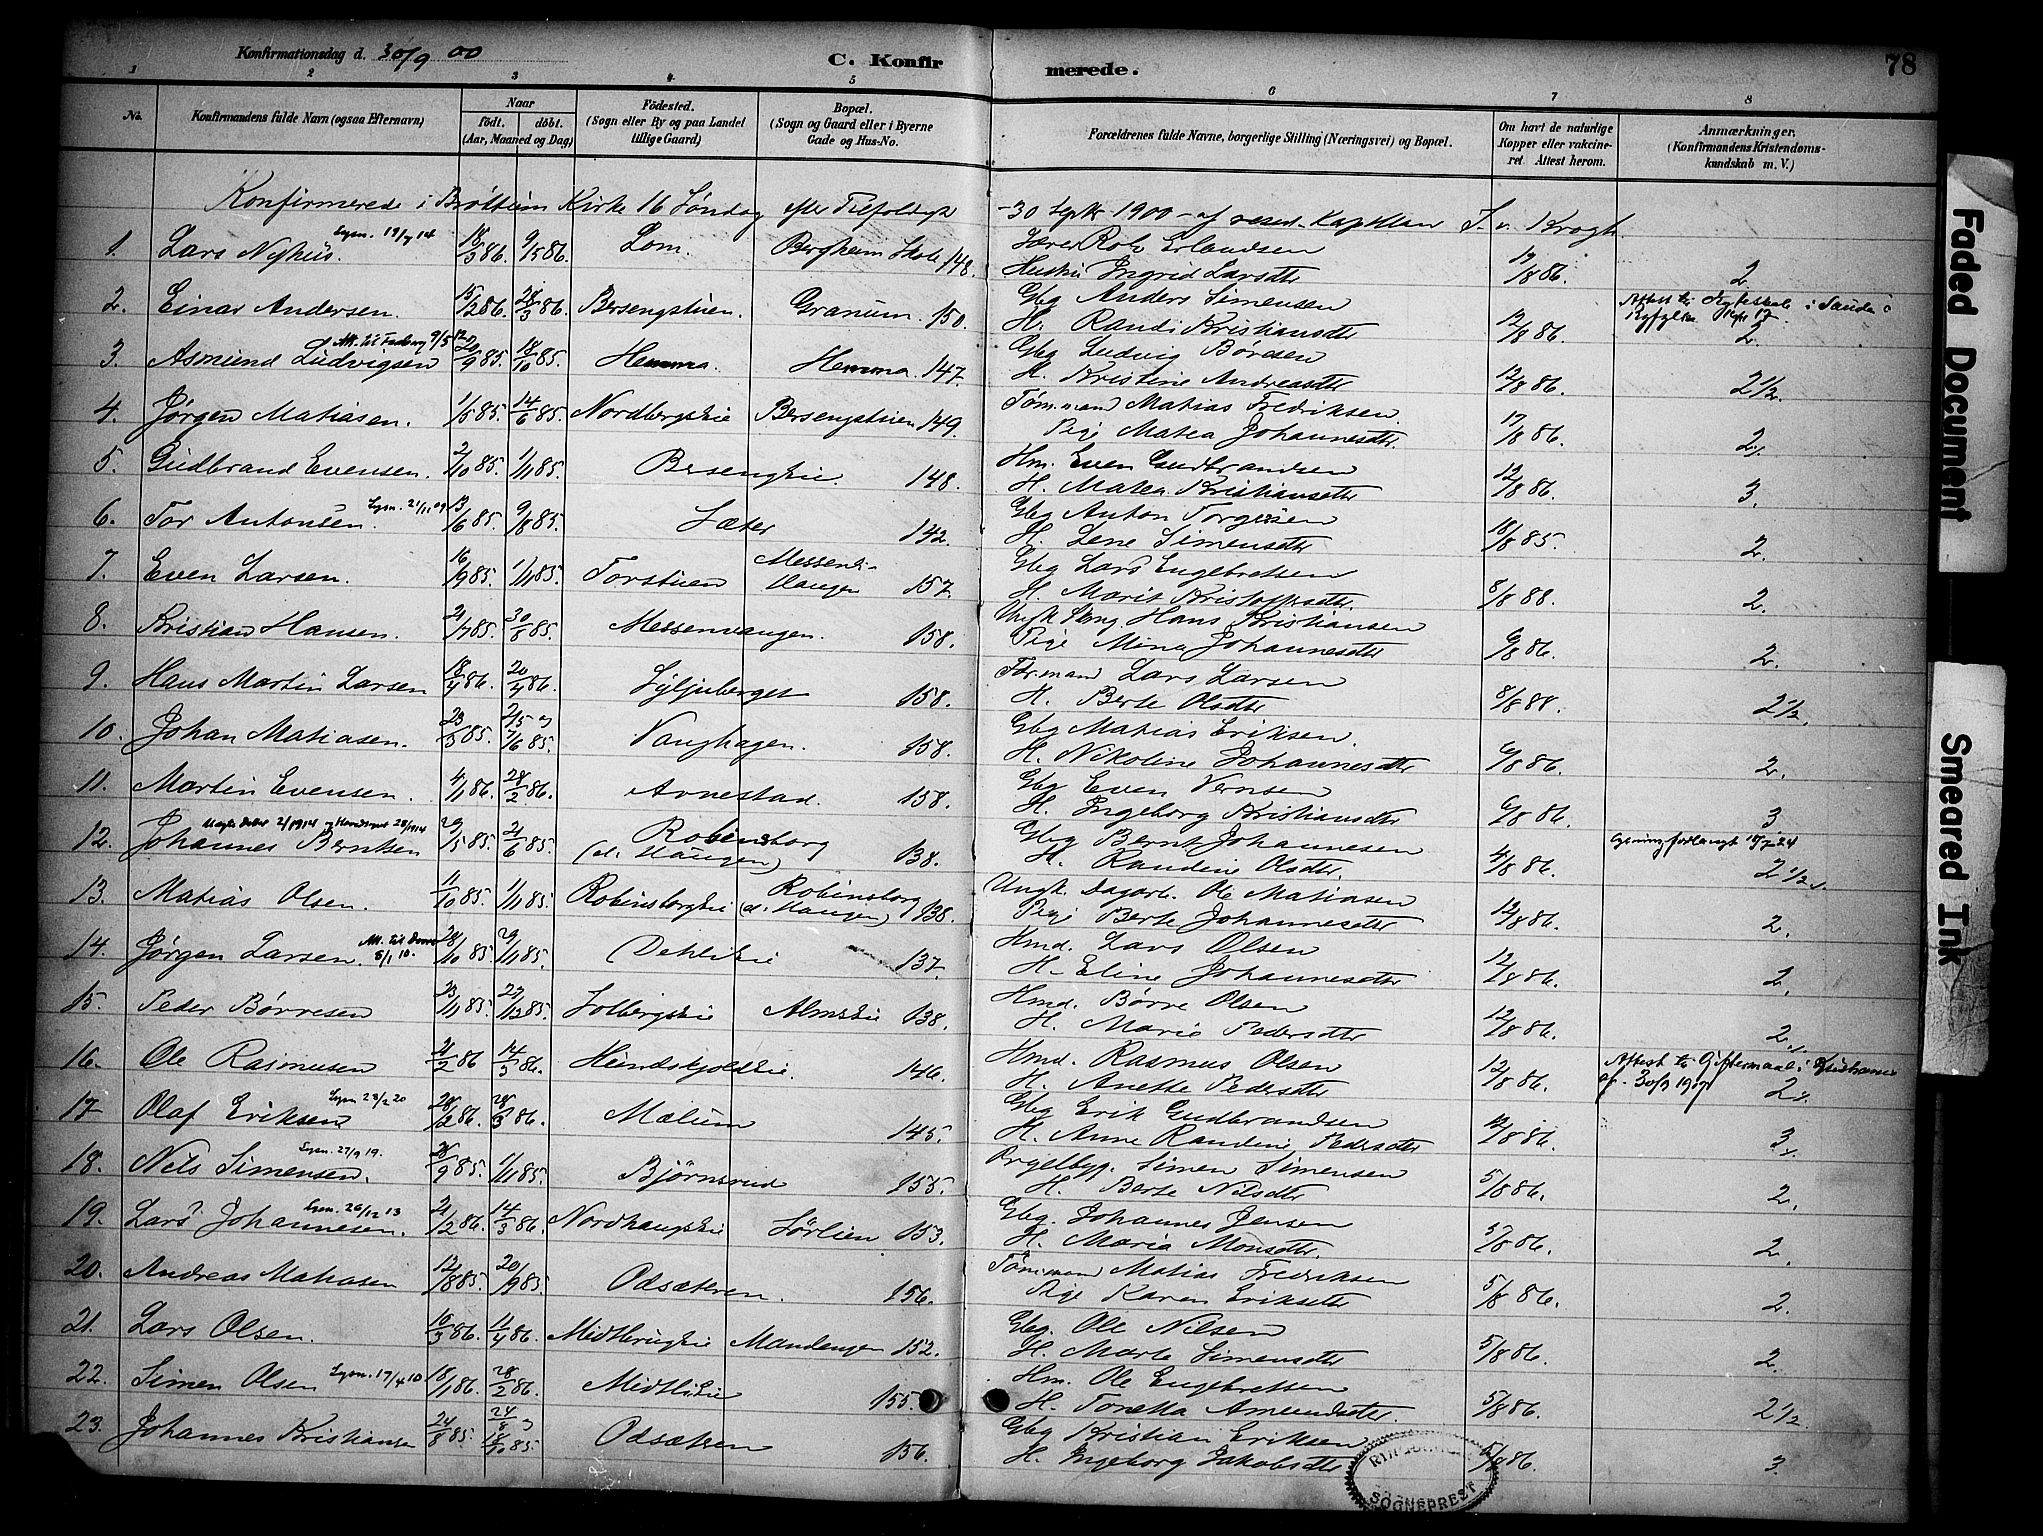 Konfirmationsdag d. 30/9 00
C. Konfirmerede.
78
1 2 3 4 5 6 7 8
No.
Konfirmandens fulde Navn (ogsaa Efternavn)
Naar
födt. döbt.
(Aar, Maaned og Dag)
Födested.
(Sogn eller By og paa Landet tillige Gaard)
Bopæl.
(Sogn og Gaard eller i Byerne Gade og Hus-No.
Forældrenes fulde Navne, borgerlige Stilling (Næringsvei) og Bopæl.
Om havt de naturlige Kopper eller vakcineret. Attest herom.
Anmærkninger,
(Konfirmandens Kristendomskundskab m. V.)
Konfirmerede i Brøttum Kirke 16 Søndag efter Trefoldigh. - 30 Septbr 1900 - af resid. Kapellan S. v. Krogh.
1. Lars Nyhus. 18/3 86. 9/5 86. Lom. Bergheim Skole 148.
Lærer Rolv Erlandsen
Hustru Ingrid Larsdtr 12/8 86. 2.
2. Einar Andersen. 15/2 86. 28/3 86. Bersengstuen. Granum. 150.
Gbg Anders Simensen
H. Randi Kristiansdtr 12/8 86. 2.
3. Asmund Ludvigsen 20/9 85. 18/10 85. Hemma. Hemma. 147.
Gbg Ludvig Børesen
H. Kristine Andreasdtr 12/8 86. 2 1/2.
4. Jørgen Matiasen. 1/5 85. 14/6 85. Nordbergseie Bersengstuen 149.
Tømmermand Matias Fredriksen
Pige Matea Johannesdtr 17/8 86. 2.
5. Gudbrand Evensen. 2/10 85. 1/11 85. Bersengeie. 148.
Hm. Even Gudbrandsen
H. Matea Kristiansdtr 12/8 86. 3.
6. Tor Antonsen. 13/6 85. 9/8 85. Sæter 142.
Gbg Anton Torgersen
H. Lene Simensdtr 18/8 85. 2.
7. Even Larsen. 16/9 85. 1/11 85. Torstuen Messenhaugen 157.
Gbg Lars Engebretsen
H. Marit Kristoffersdtr. 8/8 88. 2.
8. Kristian Hansen. 21/7 85. 30/8 85. Messenhaugen. 158.
Ungk. Hans Kristiansen
Pige Mina Johannesdtr 6/8 86. 2.
9. Hans Martin Larsen 18/4 86. 20/4 86. Lyljuberget 158.
Lars Larsen
H. Berte Olsdtr 8/8 88. 2 1/2.
10. Johan Matiasen. 23/3 85. 7/6 85. Vanghagen. 158.
Gbg Matias Eriksen.
H. Nikoline Johannesdtr 6/8 86. 2.
11. Martin Evensen. 4/1 86. 28/2 86. Avnestad. 158.
Gbg Even Evensen
H. Ingeborg Kristiansdtr 6/8 86. 3
12. Johannes Berntsen 29/5 85. 21/6 85. Robinsborg (d. Haugen) 138.
Gbg Bernt Johannesen
H. Randine Olsdtr 4/8 86. 2 1/2.
13. Matias Olsen. 11/10 85. 1/11 85. Robinsborgeie Robinsborg (d. Haugen) 138.
Ungk. Dagarb. Ole Matiasen
Pige Berte Johannesdtr 12/8 86. 2.
14. Jørgen Larsen. 28/10 85. 29/11 85. Dehlieie 137.
Hmd. Lars Olsen
H. Eline Johannesdtr 12/8 86. 2.
15. Peder Børresen 23/11 85. 27/12 85. Solbergseie Almseie 138.
Hmd. Børre Olsen
H. Marie Pedersdtr 12/8 86. 2.
16. Ole Rasmusen 21/2 86 14/3 86. Hundskjoldeie. 146.
Hmd. Rasmus Olsen
H. Anette Pedersdtr 12/8 86. 2.
17 Olaf Eriksen 28/2 86. 28/3 86. Mælum 145.
Gbg Erik Gudbrandsen
H. Anne Randine Pedersdtr 12/8 86. 3.
18. Nils Simensen. 26/9 85. 1/11 85. Bjørnsrud 155.
Orgelbyg. Simen Simensen
H. Berte Nilsdtr 5/8 86. 2.
19. Lars Johannesen. 21/2 86. 14/3 86. Nordhaugseie Sørlien 153.
Gbg. Johannes Jensen
H. Maria Monsdtr. 5/8 86. 2.
20. Andreas Matiasen 12/8 85. 20/9 85. Odsæteren. 156.
Tømmermand Matias Fredriksen
Pige Karen Eriksdtr 5/8 86. 2.
21. Lars Olsen. 10/3 86. 11/4 86. Midtbrugseie Mandengen 152.
Gbg. Ole Nilsen
H. Marte Simensdtr 5/8 86. 2.
22. Simen Olsen 18/1 86. 28/2 86. Midtlieie 155.
Hm. Ole Engebretsen
H. Tonetta Amundsdtr. 5/8 86. 2 1/2
23. Johannes Kristiansen 24/8 85. 18/10 85. Odsæteren 156.
Gbg Kristian Eriksen
H. Ingeborg Jakobsdtr 5/8 86. 3.
SOGNEPREST
Faded Document
Smeared Ink